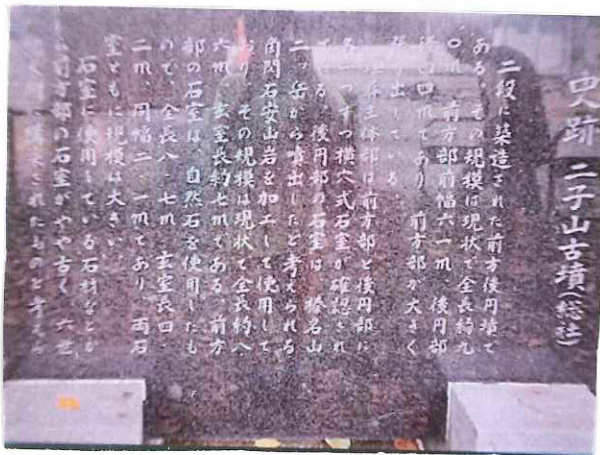 史跡 二子山古墳(総社)
二段に築造された前方後円墳で
ある。その規模は現状で全長約九
〇m、前方部前幅六一m、後円部
四四mであり、前方部が大きく
張り出している。
主体部は前方部と後円部に
一つずつ横穴式石室が確認され
る。後円部の石室は、榛名山
二ッ岳から噴出したと考えられる
角閃石安山岩を加工して使用して
おり、その規模は現状で全長約八
六m、玄室長約七mである。前方
部の石室は、自然石を使用したも
ので、全長八・七m、玄室長四・
二m、同幅二・一mであり、両石
室ともに規模は大きい。
石室に使用している石材などか
前方部の石室がやや古く、六世
されたものと考えら